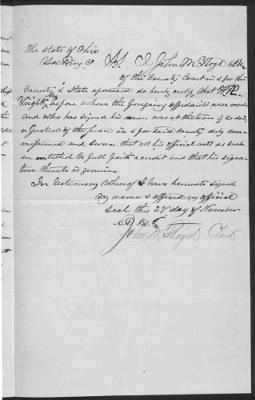 The State of Ohio
SS I John M Floyd Clk
of the County Court in & for the
County & State aforesaid do hereby certify that
Wright before whom the foregoing affidavits was made
and who has signed his name was at the time of so doing
a Justice of the peace in & for said County duly com
missioned and Sworn that all his official acts as such
are entitled to full faith & credit and that his signa
ture thereto is genuine
In testimony whereof I have hereunto signed
my name & affixed my official
Seal this 28 day of November
John M Floyd Clerk